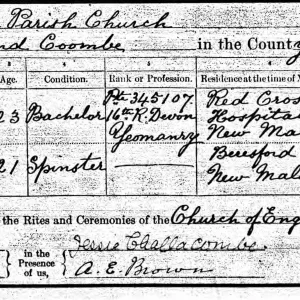 Parish Church
nd Coombe in the County
Age. Condition. Rank or Profession. Residence at the time of M
23 Bachelor Pte 345107. 16th R. Devon Yeomanry Red Cros Hospital New Ma
21 Spinster Beresford New Mal
the Rites and Ceremonies of the Church of Eng
in the Presence of us,
Jessie Challacombe
A. E. Brown